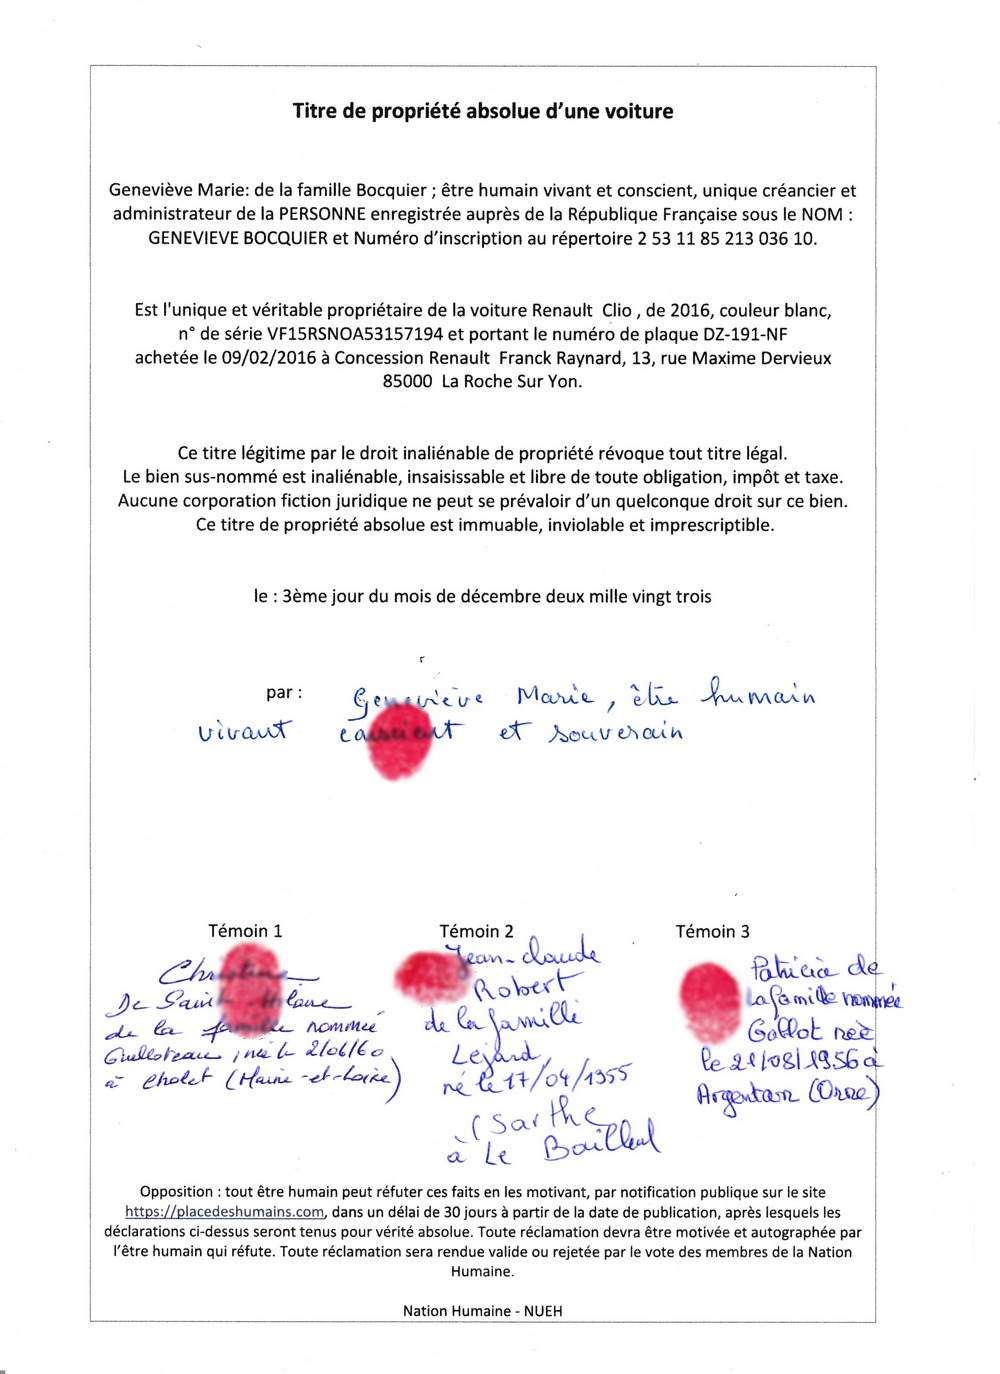 Titre de propriété absolue d'une voiture
Geneviève Marie: de la famille Bocquier ; être humain vivant et conscient, unique créancier et
administrateur de la PERSONNE enregistrée auprès de la République Française sous le NOM :
GENEVIEVE BOCQUIER et Numéro d'inscription au répertoire 2 53 11 85 213 036 10.
Est l'unique et véritable propriétaire de la voiture Renault Clio , de 2016, couleur blanc,
n° de série VF15RSNOA53157194 et portant le numéro de plaque DZ-191-NF
achetée le 09/02/2016 à Concession Renault Franck Raynard, 13, rue Maxime Dervieux
85000 La Roche Sur Yon.
Ce titre légitime par le droit inaliénable de propriété révoque tout titre légal.
Le bien sus-nommé est inaliénable, insaisissable et libre de toute obligation, impôt et taxe.
Aucune corporation fiction juridique ne peut se prévaloir d'un quelconque droit sur ce bien.
Ce titre de propriété absolue est immuable, inviolable et imprescriptible.
le : 3ème jour du mois de décembre deux mille vingt trois
par : Geneviève Marie, être humain
vivant conscient et souverain
Témoin 1
Christine
De Saint Hilaire
de la famille nommée
Guilloteau, née le 2/06/60
à Cholet (Maine-et-Loire)
Témoin 2
Jean-claude
Robert
de la famille
Lejard,
né le 17/04/1955
(Sarthe
à Le Bailleul
Témoin 3
Patricia de
la famille nommée
Gallot née
le 21/08/1956 à
Argentan (Orne)
Opposition : tout être humain peut réfuter ces faits en les motivant, par notification publique sur le site
https://placedeshumains.com, dans un délai de 30 jours à partir de la date de publication, après lesquels les
déclarations ci-dessus seront tenues pour vérité absolue. Toute réclamation devra être motivée et autographée par
l'être humain qui réfute. Toute réclamation sera rendue valide ou rejetée par le vote des membres de la Nation
Humaine.
Nation Humaine - NUEH